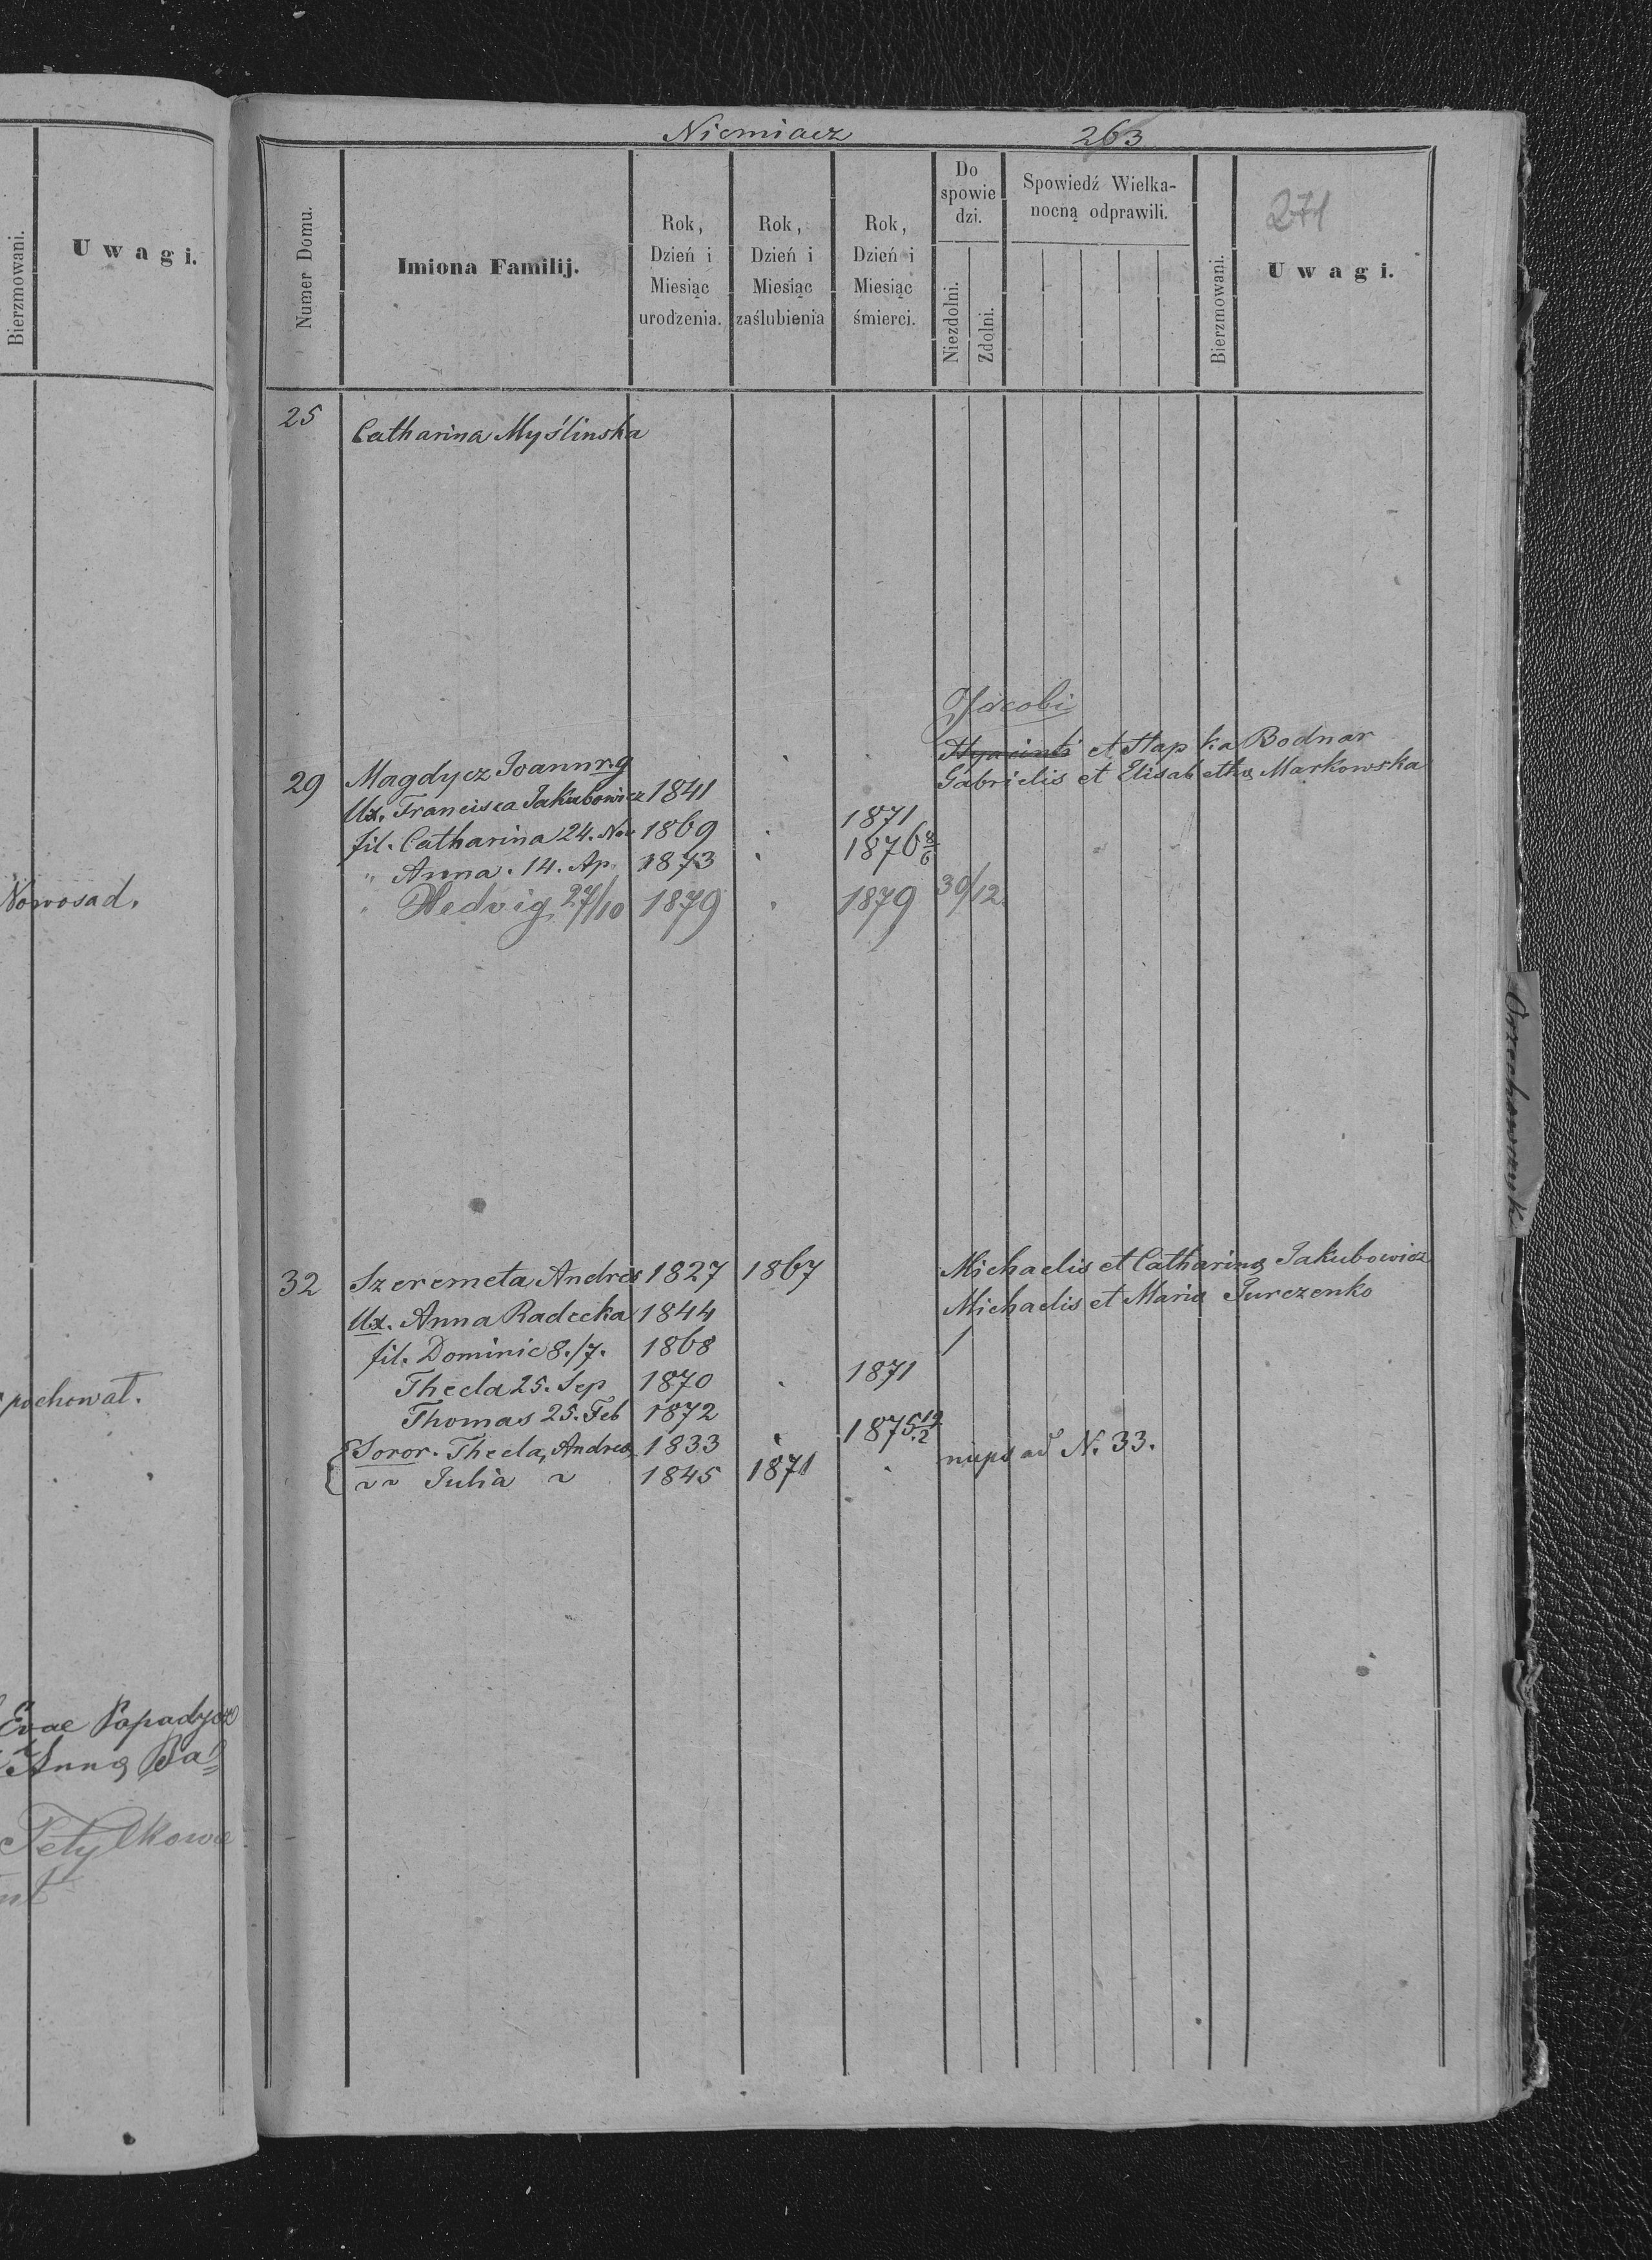 Bierzmowani.
Uwagi.
Nowosad.
pochowat.
Evae Papadycz
Anna Pa=
Niemiacz 263
271
Numer Domu.
Imiona Familij.
Rok, Dzień i Miesiąc urodzenia.
Rok, Dzień i Miesiąc zaślubienia
Rok, Dzień i Miesiąc śmierci.
Do spowie dzi.
Niezdolni.
Zdolni.
Spowiedź Wielka-
nocną odprawili.
Bierzmowani.
Uwagi.
25 Catharina Myślinska
Jacobi
Hyacinti et Hapka Bodnar
29 Magdycz Joann
Gabrielis et Elisabetha Markowska
Ux. Francisca Jakubowicz 1841
fil. Catharina 24. Nov 1869 1871
" Anna. 14. Ap. 1873 1876 8/6
" Hedvig 27/10 1879 1879 30/12
Orzechowcze
32 Szeremeta Andreas 1827 1867 Michaelis et Catharina Jakubowicz
Ux. Anna Radecka 1844 Michaelis et Maria Jurczenko
fil. Dominic 8./7. 1868 /
Thecla 25. Sep 1870 1871
Thomas 25. Feb 1872 1875 19/2
Soror. Thecla, Andrea 1833 nups ad N. 33.
~~ Julia ~ 1845 1871